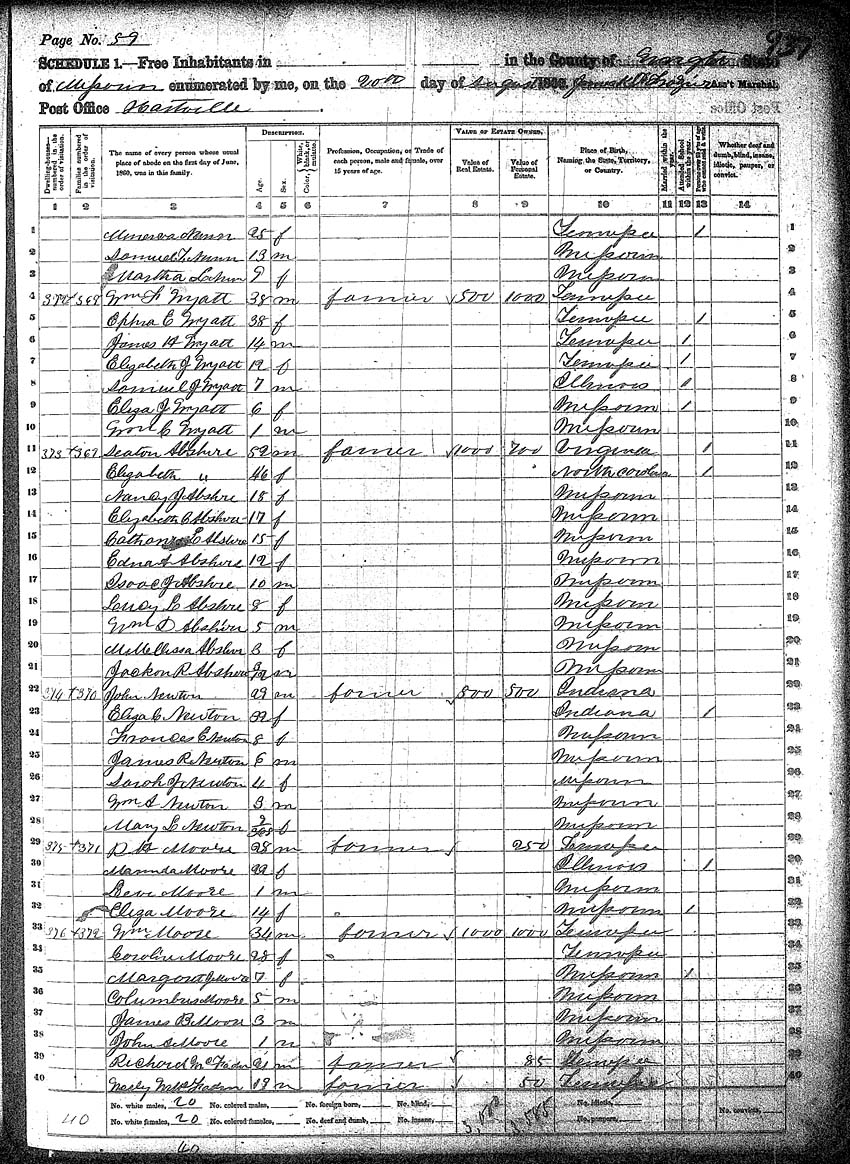 Page No. 59
937
SCHEDULE 1.—Free Inhabitants in in the County of State
of Missouri enumerated by me, on the 20th day of August 1860. Ass't Marshal.
Post Office Hartville
Post Office
Dwelling-houses numbered in the order of visitation.
Families numbered in the order of visitation.
The name of every person whose usual place of abode on the first day of June, 1860, was in this family.
DESCRIPTION.
Age.
Sex.
Color, White, black, or mulatto.
Profession, Occupation, or Trade of each person, male and female, over 15 years of age.
VALUE OF ESTATE OWNED.
Value of Real Estate.
Value of Personal Estate.
Place of Birth, Naming the State, Territory, or Country.
Married within the year.
Attended School within the year.
Whether deaf and dumb, blind, insane, idiotic, pauper, or convict.
1 2 3 4 5 6 7 8 9 10 11 12 13 14
1 Minerva Nunn 25 f Tennessee 1 1
2 Samuel T Nunn 13 m Missouri 2
3 Martha L Nunn 9 f Missouri 3
4 369 Wm Wyatt 38 m farmer 500 1000 Tennessee 4
5 E Wyatt 38 f Tennessee 1 5
6 James H Wyatt 14 m Tennessee 1 6
7 Elizabeth J Wyatt 12 f Tennessee 1 7
8 Samuel J Wyatt 7 m Illinois 1 8
9 Eliza J Wyatt 6 f Missouri 1 9
10 Wm C Wyatt 1 m Missouri 10
11 373 369 Seaton Abshire 52 m farmer 1000 700 Virginia 1 11
12 Elizabeth " 46 f North Carolina 1 12
13 Nancy J Abshire 18 f Missouri 13
14 Elizabeth C Abshire 17 f Missouri 14
15 Abshire 15 f Missouri 15
16 Edna Abshire 12 f Missouri 16
17 Isaac J Abshire 10 m Missouri 17
18 L Abshire 8 f Missouri 18
19 Wm D Abshire 5 m Missouri 19
20 Abshire 3 f Missouri 20
21 Jackson R Abshire m Missouri 21
22 374 370 John Newton 29 m farmer 800 500 Indiana 22
23 Eliza C Newton 22 f Indiana 1 23
24 Frances E Newton 8 f Missouri 24
25 James R Newton 6 m Missouri 25
26 Sarah J Newton 4 f Missouri 26
27 Wm S Newton 3 m Missouri 27
28 Mary L Newton f Missouri 28
29 375 371 R H Moore 28 m farmer 250 Tennessee 29
30 Moore 22 f Illinois 1 30
31 Levi Moore 1 m Missouri 31
32 Eliza Moore 14 f Missouri 1 32
33 376 372 Wm Moore 34 m farmer 1000 1000 Tennessee 33
34 Caroline Moore 28 f Tennessee 34
35 Margaret J Moore 7 f Missouri 1 35
36 Columbus Moore 5 m Missouri 36
37 James B Moore 3 m Missouri 37
38 John S Moore 1 m Missouri 38
39 Richard 21 m farmer 85 Tennessee 39
40 19 m farmer 50 Tennessee 40
40 No. white males, 20 No. colored males, No. foreign born, No. blind, No. idiotic, No. convicts,
No. white females, 20 No. colored females, No. deaf and dumb, No. insane, No. paupers,
40